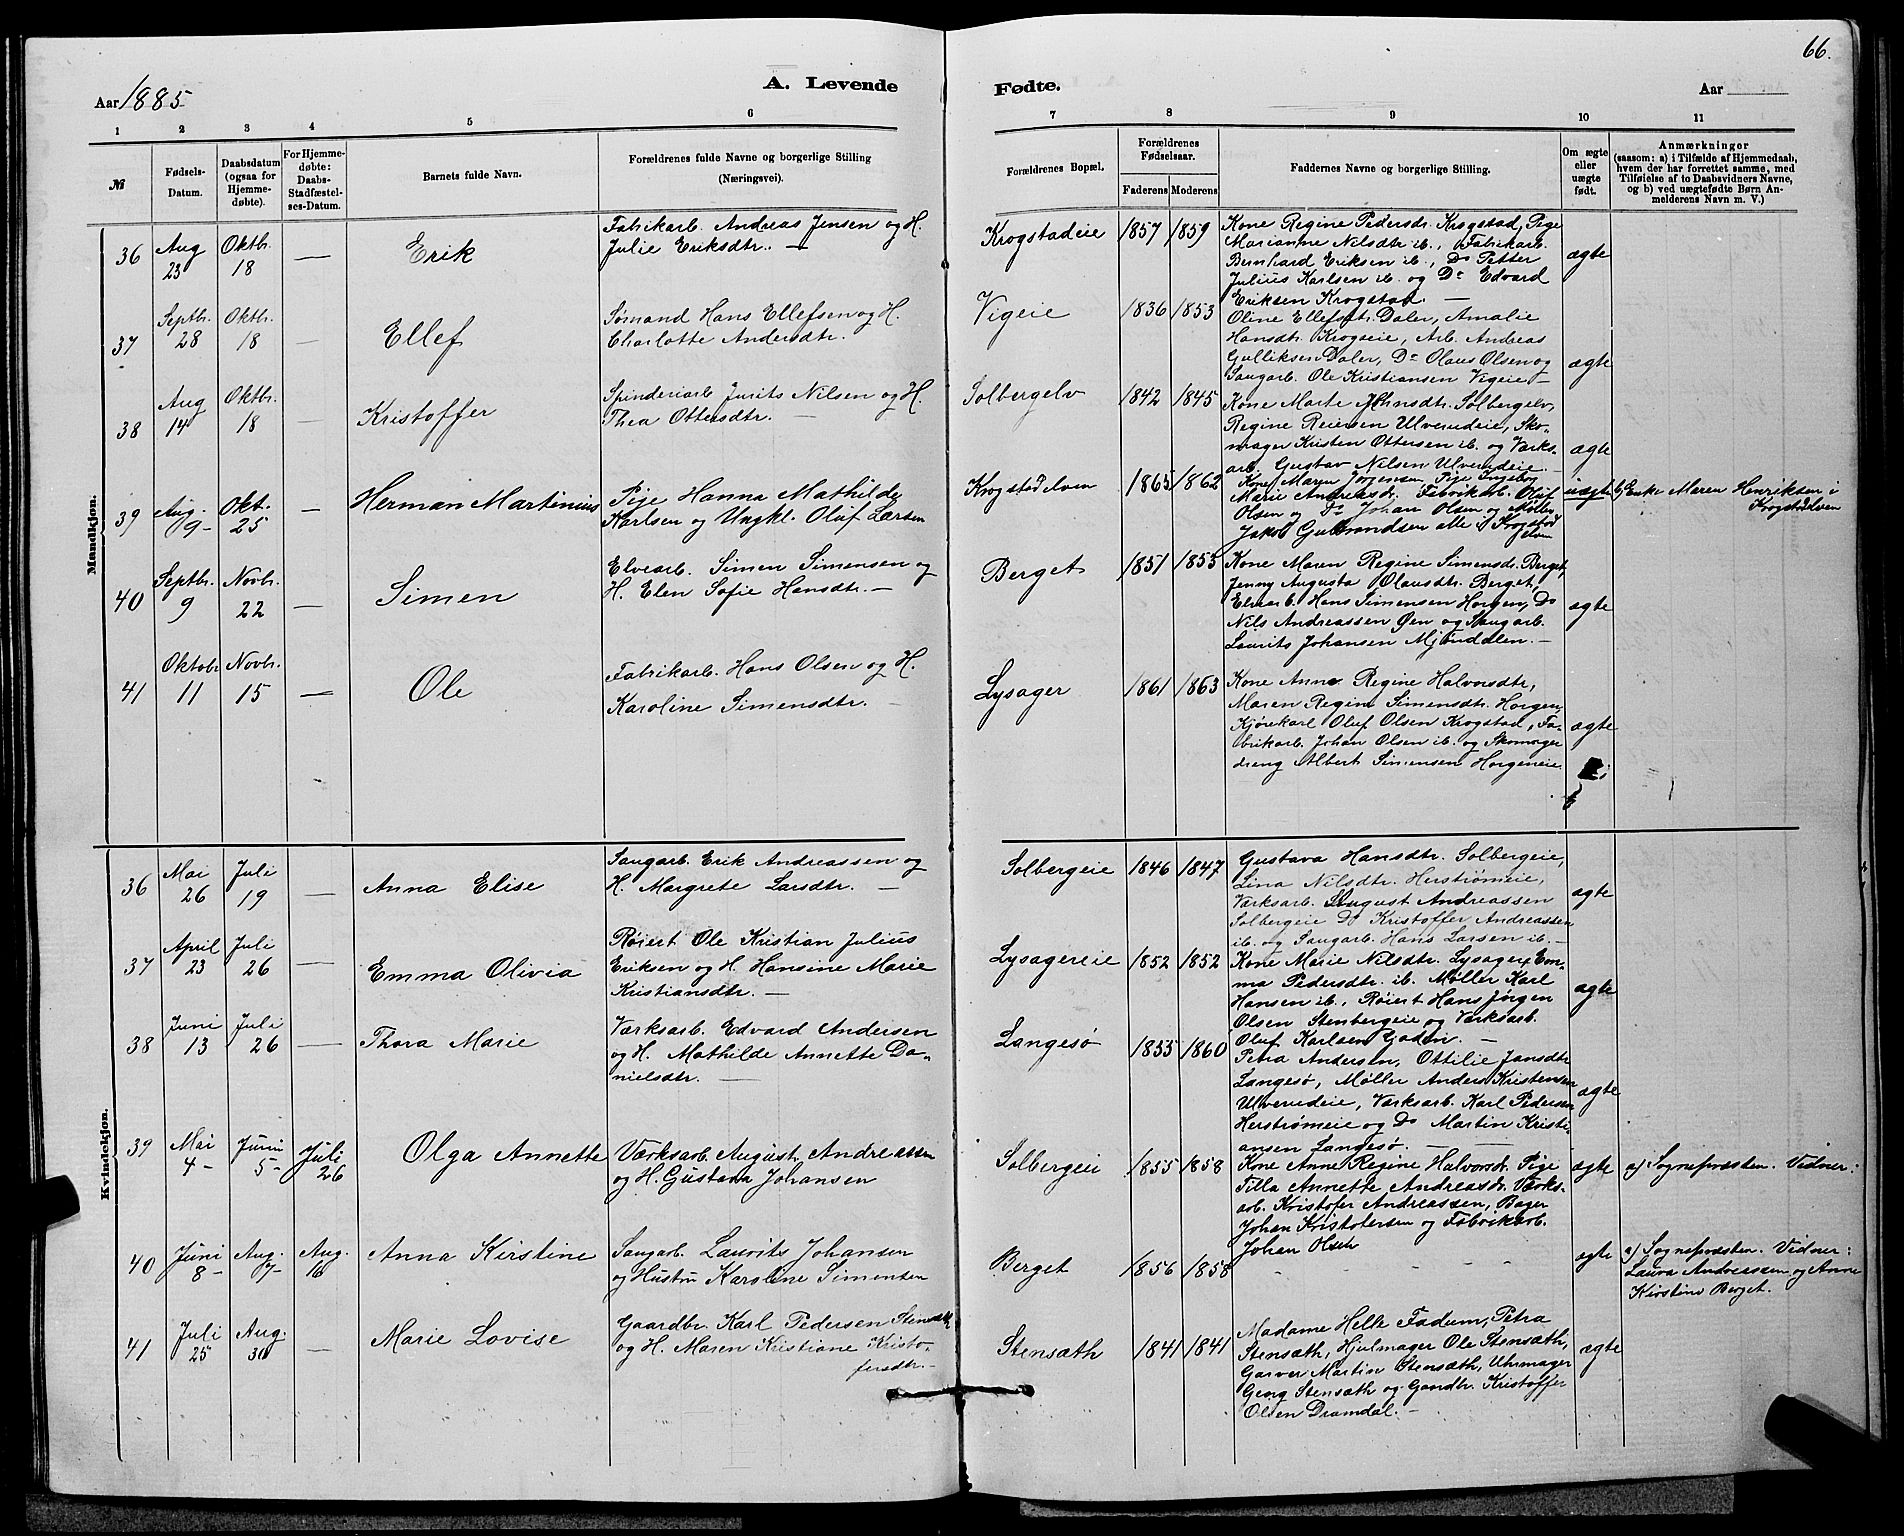 66.
Aar 1885
A. Levende
Fødte.
Aar
1 2 3 4 5 6 7 8 9 10 11
№
Fødsels-
Datum.
Daabsdatum
(ogsaa for
Hjemme-
døbte).
For Hjemme-
døbte:
Daabs-
Stadfæstel-
ses-Datum.
Barnets fulde Navn.
Forældrenes fulde Navne og borgerlige Stilling
(Næringsvei).
Forældrenes Bopæl.
Forældrenes
Fødselsaar.
Faderens Moderens
Faddernes Navne og borgerlige Stilling.
Om ægte
eller
uægte
født.
Anmærkninger
(saasom: a) i Tilfælde af Hjemmedaab,
hvem der har forrettet samme, med
Tilføielse af to Daabsvidners Navne,
og b) ved uægtefødte Børn An-
melderens Navn m. V.)
Mandkjøn.
36 Aug 23 Oktb. 18 — Erik
Fabrikarb. Andreas Jensen og H.
Julie Eriksdtr. —
Krogstadeie 1857 1859
Kone Regine Pedersdr. Krogstad, Pige
Marianne Nilsdtr ib., Fabrikarb.
Bernhard Eriksen ib., Do Petter
Julius Karlsen ib. og Do Edvard
Eriksen Krogstad. —
ægte
37 Septbr. 28 Oktbr. 18 — Ellef
Sømand Hans Ellefsen og H.
Charlotte Andersdtr. —
Vigeie 1836 1853
Oline Ellefsdtr. Daler, Amalie
Hansdtr. Krogseie, Arb. Andreas
Gulliksen Daler, Do Olaus Olsen og
Saugarb. Ole Kristiansen Vigeie —
ægte
38 Aug 14 Oktbr. 18 — Kristoffer
Spinderiarb. Jurits Nilsen og H.
Thea Ottersdtr. —
Solbergelv 1842 1845
Kone Marte Johnsdtr. Solbergelv,
Regine Reiersen Ulverudeie, Sko-
mager Kristen Ottersen ib. og Værks-
arb. Gustav Nilsen Ulverudeie. —
ægte
39 Aug. 9- Okt. 25 — Herman Martinius
Pige Hanna Mathilde
Karlsen og Ungkl. Oluf Larsen
Krogstadelven 1865 1862
Kone Maren Jørgensen, Pige Ingeborg
Marie Andreasdr. Fabrikarb. Oluf
Olsen og Do Johan Olsen og Møller
Jakob Gulbrandsen alle i Krogstad
elven
uægte b) Enke Maren Henriksen i
Krogstadelven
40 Septbr. 9 Novbr. 22 — Simen
Elvearb. Simen Simensen og
H. Elen Sofie Hansdtr. —
Berget 1851 1855
Kone Maren Regine Simensdr. Berget,
Jenny Augusta Olausdtr. Berget,
Elvearb. Hans Simensen Horgen, Do
Nils Andreassen Øen og Saugarb.
Laurits Johansen Mjøndalen. —
ægte
41 Oktobr 11 Novbr. 15 — Ole
Fabrikarb. Hans Olsen og H.
Karoline Simensdtr. —
Lysager 1861 1863
Kone Anne Regine Halvorsdtr,
Maren Regine Simensdtr. Horgen,
Kjørekarl Oluf Olsen Krogstad, Fa-
brikarb. Johan Olsen ib. og Skomager
dreng Albert Simensen Horgeneie.
ægte
Kvindekjøn.
36 Mai 26 Juli 19 — Anna Elise
Saugarb. Erik Andreassen og
H. Margrete Larsdtr. —
Solbergeie 1846 1847
Gustava Hansdtr. Solbergeie,
Lina Nilsdtr. Herstrømeie,
Værksarb. August Andreassen
Solbergeie Do Kristoffer Andreassen
ib. og Saugarb. Hans Larsen ib. —
ægte
37 April 23 Juli 26 — Emma Olivia
Røiert Ole Kristian Julius
Eriksen og H. Hansine Marie
Kristiansdtr. —
Lysagereie 1852 1852
Kone Marie Nilsdtr. Lysager, Em-
ma Pedersdtr. ib. Møller Karl
Hansen ib., Røiert Hans Jørgen
Olsen Stenbergeie og Værksarb.
Oluf Karlsen Gaden. —
ægte
38 Juni 13 Juli 26 — Thora Marie
Værksarb. Edvard Andersen
og H. Mathilde Annette Da-
nielsdtr. —
Langesø 1855 1860
Petra Andersen, Ottilie Jansdtr
Langesø, Møller Anders Kristensen
Ulverudeie, Værksarb. Karl Pedersen
Herstrømeie og Do Martin Kristi-
ansen Langesø. —
ægte
39 Mai 4- Juni 5- Juli 26 Olga Annette
Værksarb. August Andreassen
og H. Gustava Johansen
Solbergeie 1855 1858
Kone Anne Regine Halvorsdr. Pige
Tilla Annette Andreasdr. Værks-
arb. Kristofer Andreassen, Bager
Johan Kristofersen og Fabrikarb.
Johan Olsen
ægte a) Sognepræsten. Vidner:
40 Juni 8- Aug. 7- Aug. 16 Anna Kirstine
Saugarb. Laurits Johansen
og Hustru Karoline Simensen
Berget 1856 1858 - - - -
ægte a) Sognepræsten. Vidner:
Laura Andreassen og Anne
Kirstine Berget.
41 Juli 25 Aug. 30 — Marie Lovise
Gaardbr. Karl Pedersen Stensæth
og H. Maren Kristiane Kristo-
fersdtr. —
Stensæth 1841 1841
Madame Helle Fadum, Petra
Stensæth, Hjulmager Ole Stensæth,
Garver Martin Stensæth, Uhrmager
Georg Stensæth og Gaardbr. Kristoffer
Olsen Dramdal. —
ægte